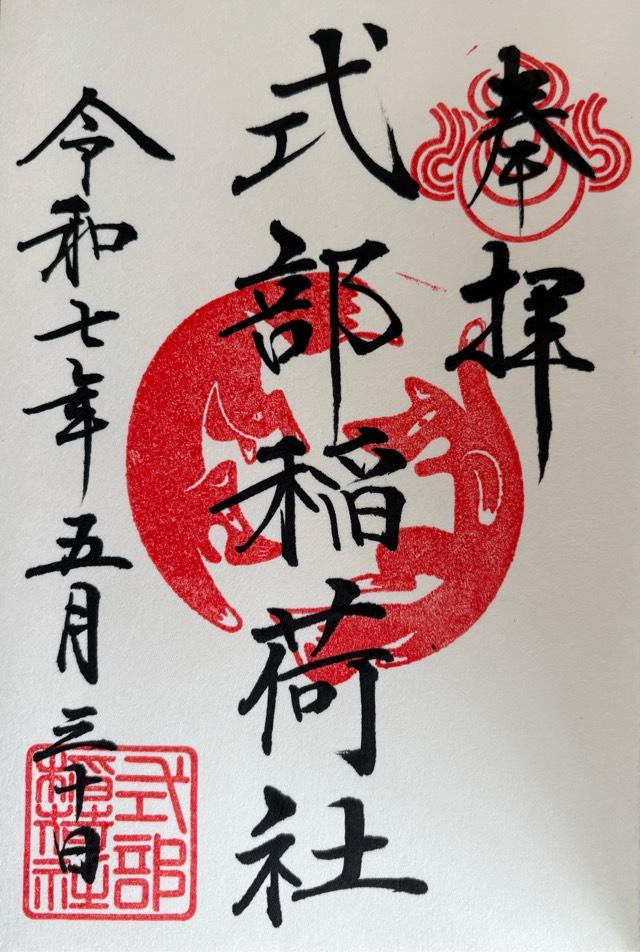 奉拝
式部稲荷社
令和七年五月三十日
式部
稲荷社